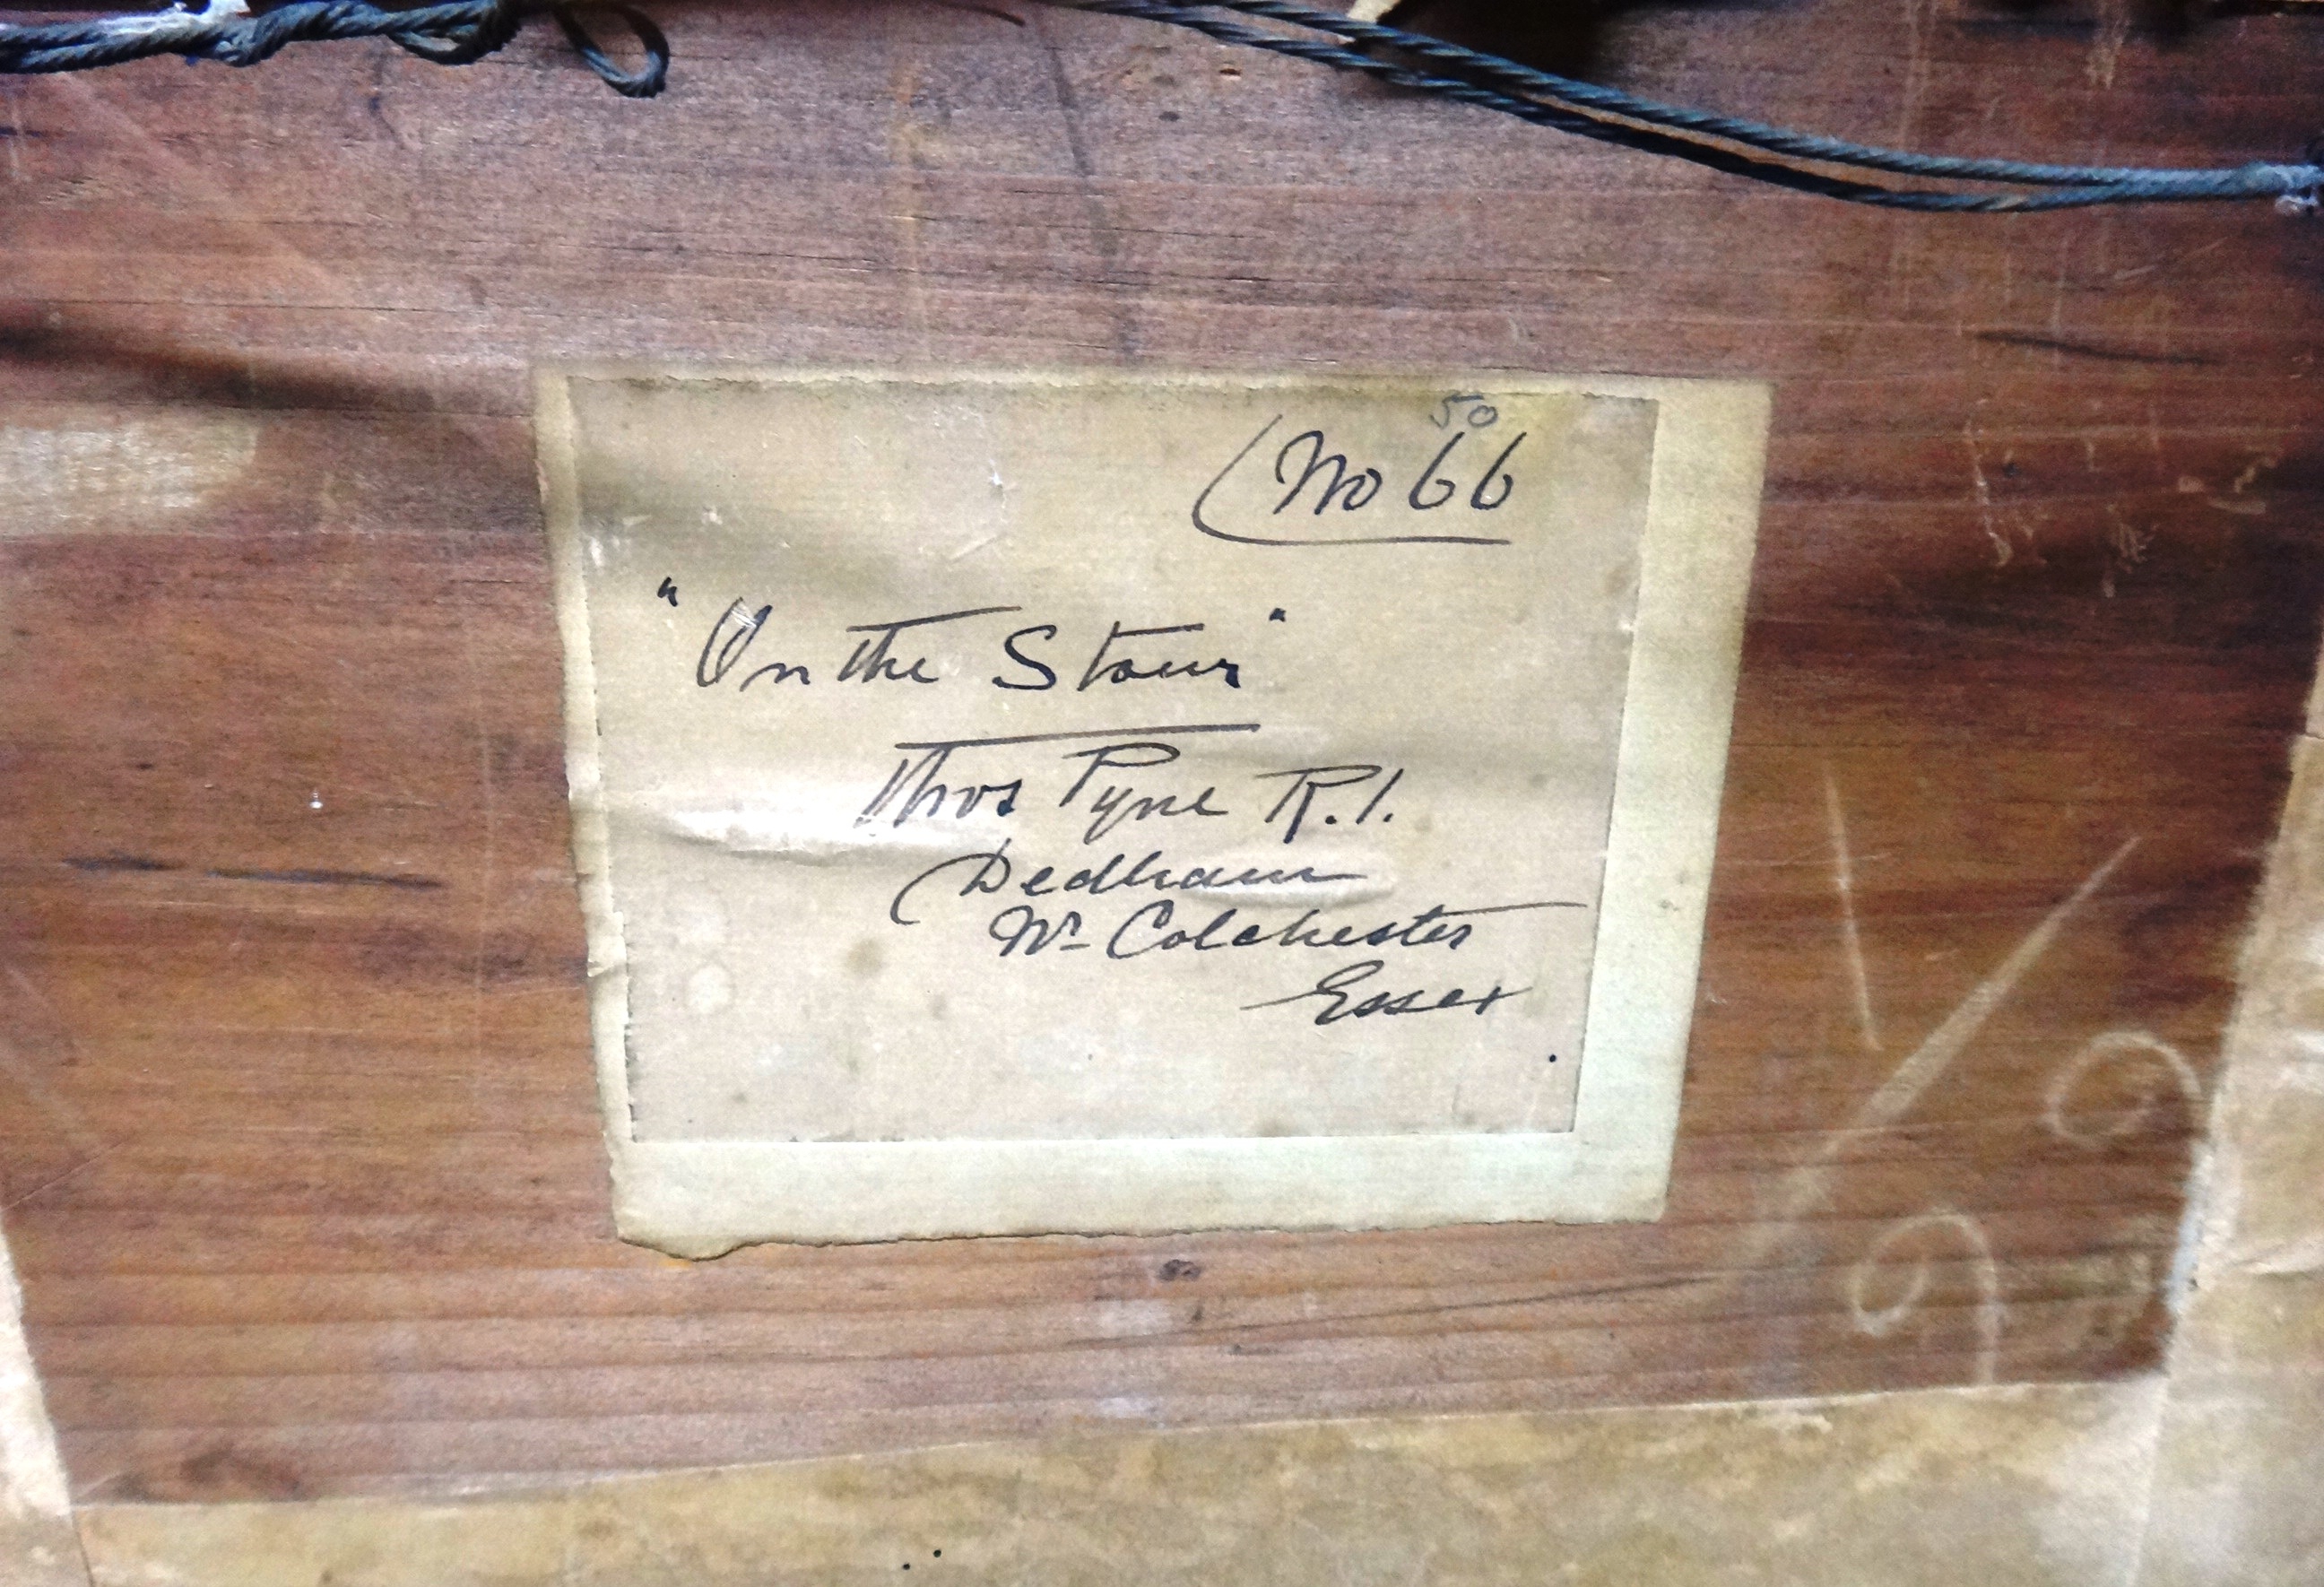 50
No 66
"On the Stour"
Thos Pyne R.I.
Dedham
Nr Colchester
Essex